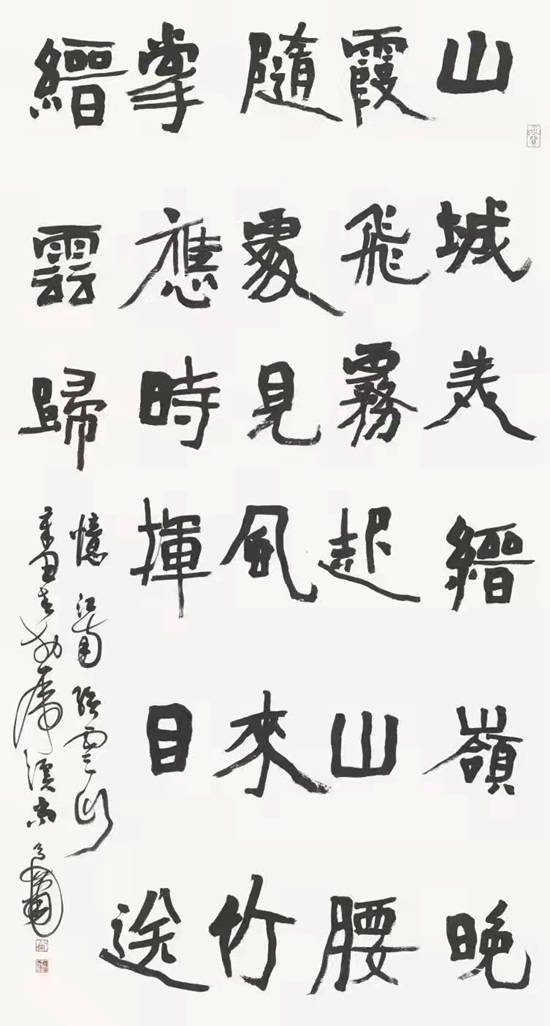 山城美縉嶺晚
霞飛霧起山腰
隨處見風來竹
掌應時揮目送
縉雲歸
憶江南縉雲山
辛丑春於虎溪